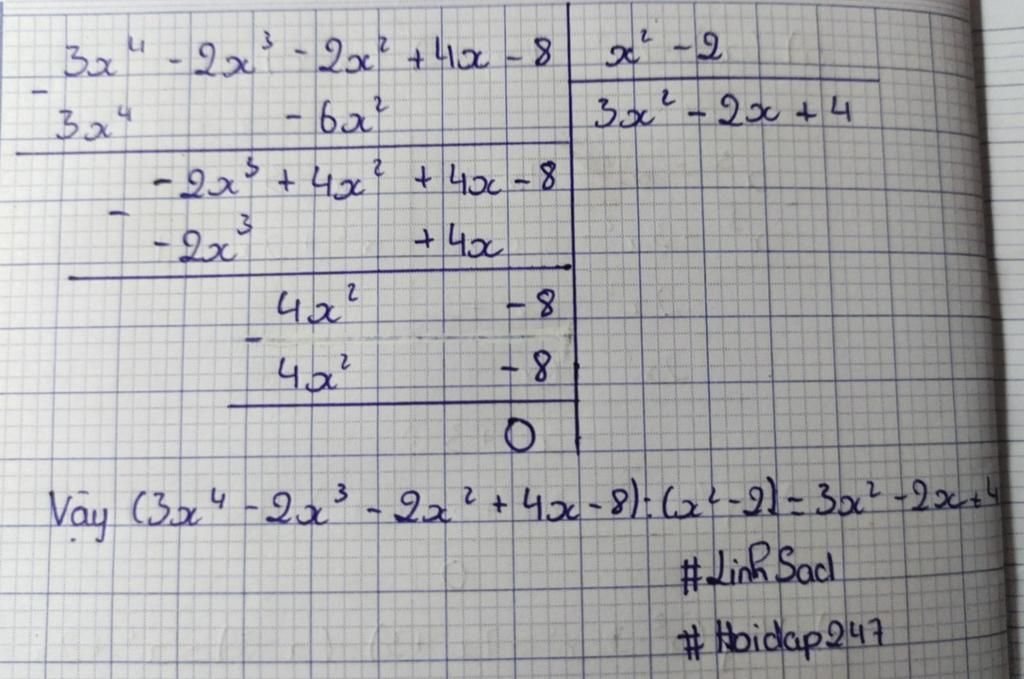 3x⁴ - 2x³ - 2x² + 4x - 8 | x² - 2
- 3x⁴ - 6x² | 3x² - 2x + 4
- 2x³ + 4x² + 4x - 8
- - 2x³ + 4x
4x² - 8
- 4x² - 8
0
Vậy (3x⁴ - 2x³ - 2x² + 4x - 8) : (x² - 2) = 3x² - 2x + 4
#LinhSad
#Hoidap247